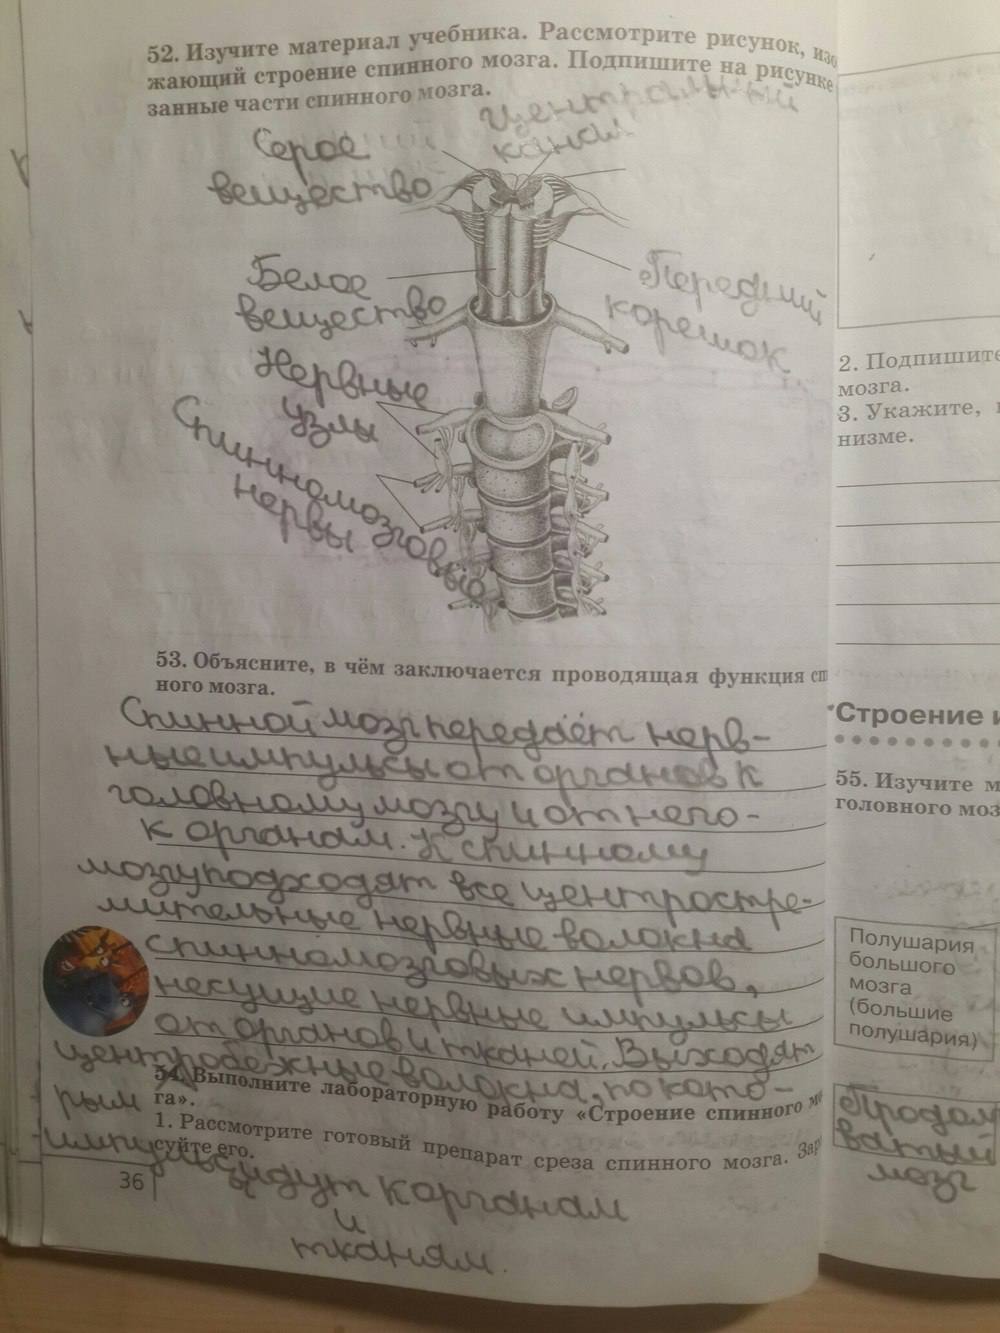 52. Изучите материал учебника. Рассмотрите рисунок, изо
жающий строение спинного мозга. Подпишите на рисунке
занные части спинного мозга.
Центральный
канал
Серое
вещество
Белое
вещество
Передний
корешок
Нервные
узлы
Спинномозговые
нервы
53. Объясните, в чём заключается проводящая функция сп
ного мозга.
Спинной мозг передаёт нерв-
ные импульсы от органов к
головному мозгу и от него-
к органам. К спинному
мозгу подходят все центростре-
мительные нервные волокна
спинномозговых нервов,
несущие нервные импульсы
от органов и тканей. Выходят
центробежные волокна, по кото-
рым
импульсы идут к органам
и
тканям.
54. Выполните лабораторную работу «Строение спинного мо
га».
1. Рассмотрите готовый препарат среза спинного мозга. Зар
суйте его.
36
2. Подпишите
мозга.
3. Укажите,
низме.
Строение и
55. Изучите м
головного моз
Полушария
большого
мозга
(большие
полушария)
Продол
ватый
мозг